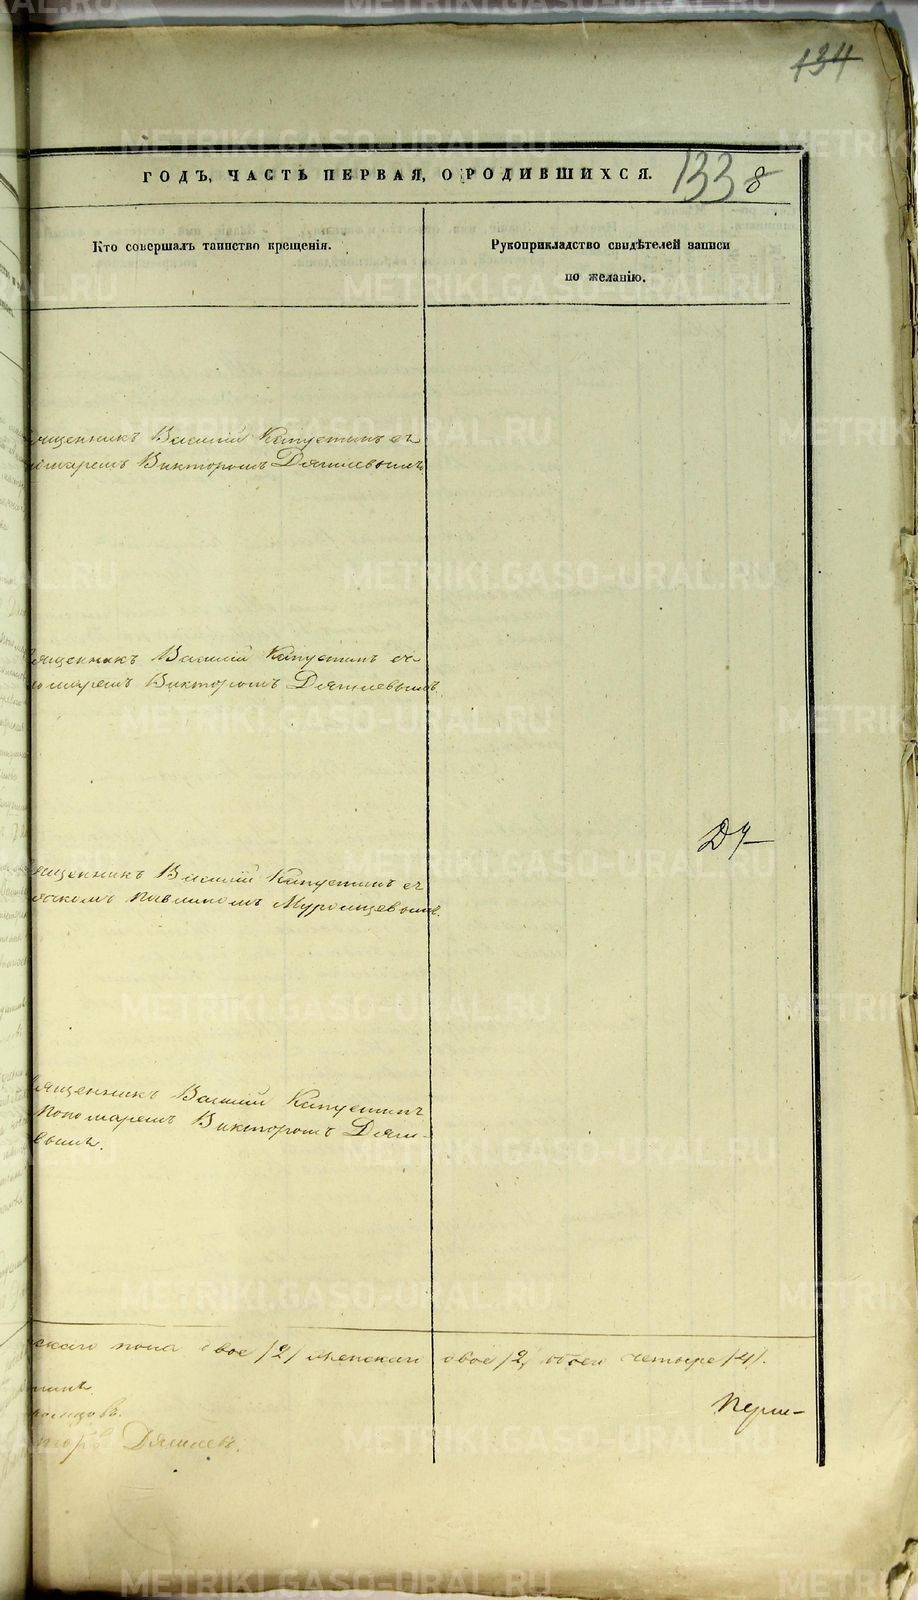 134
ГОДЪ, ЧАСТЬ ПЕРВАЯ, О РОДИВШИХСЯ. 133 8
Кто совершалъ таинство крещенія.
Рукоприкладство свидѣтелей записи
по желанію.
священникъ Василій Капустинъ съ
пономаремъ Викторомъ Дягилевымъ
Священникъ Василій Капустинъ съ
пономаремъ Викторомъ Дягилевымъ.
Священникъ Василій Капустинъ съ
дьячкомъ Павлиномъ Муромцевымъ.
Священникъ Василій Капустинъ
пономаремъ Викторомъ Дяги-
левымъ.
скаго пола двое /2/ женскаго двое /2/ обоего четыре /4/.
Викторъ Дягилевъ.
METRIKI.GASO-URAL.RU